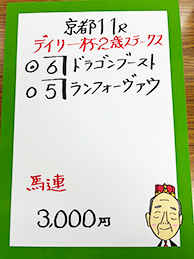 京都11R
デイリー杯2歳ステークス
◎ 6 ドラゴンブースト
○ 5 ランフォーヴァウ
馬連
3,000円